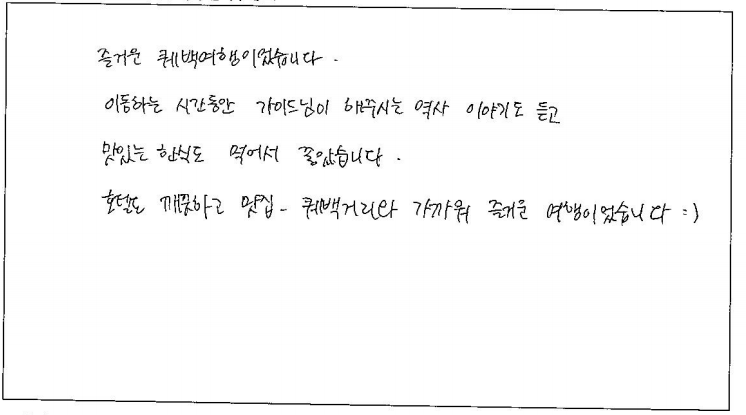 즐거운 퀘백여행이었습니다.
이동하는 시간동안 가이드님이 해주시는 역사 이야기도 듣고
맛있는 한식도 먹어서 좋았습니다.
호텔도 깨끗하고 맛집 - 퀘백거리와 가까워 즐거운 여행이었습니다 :)